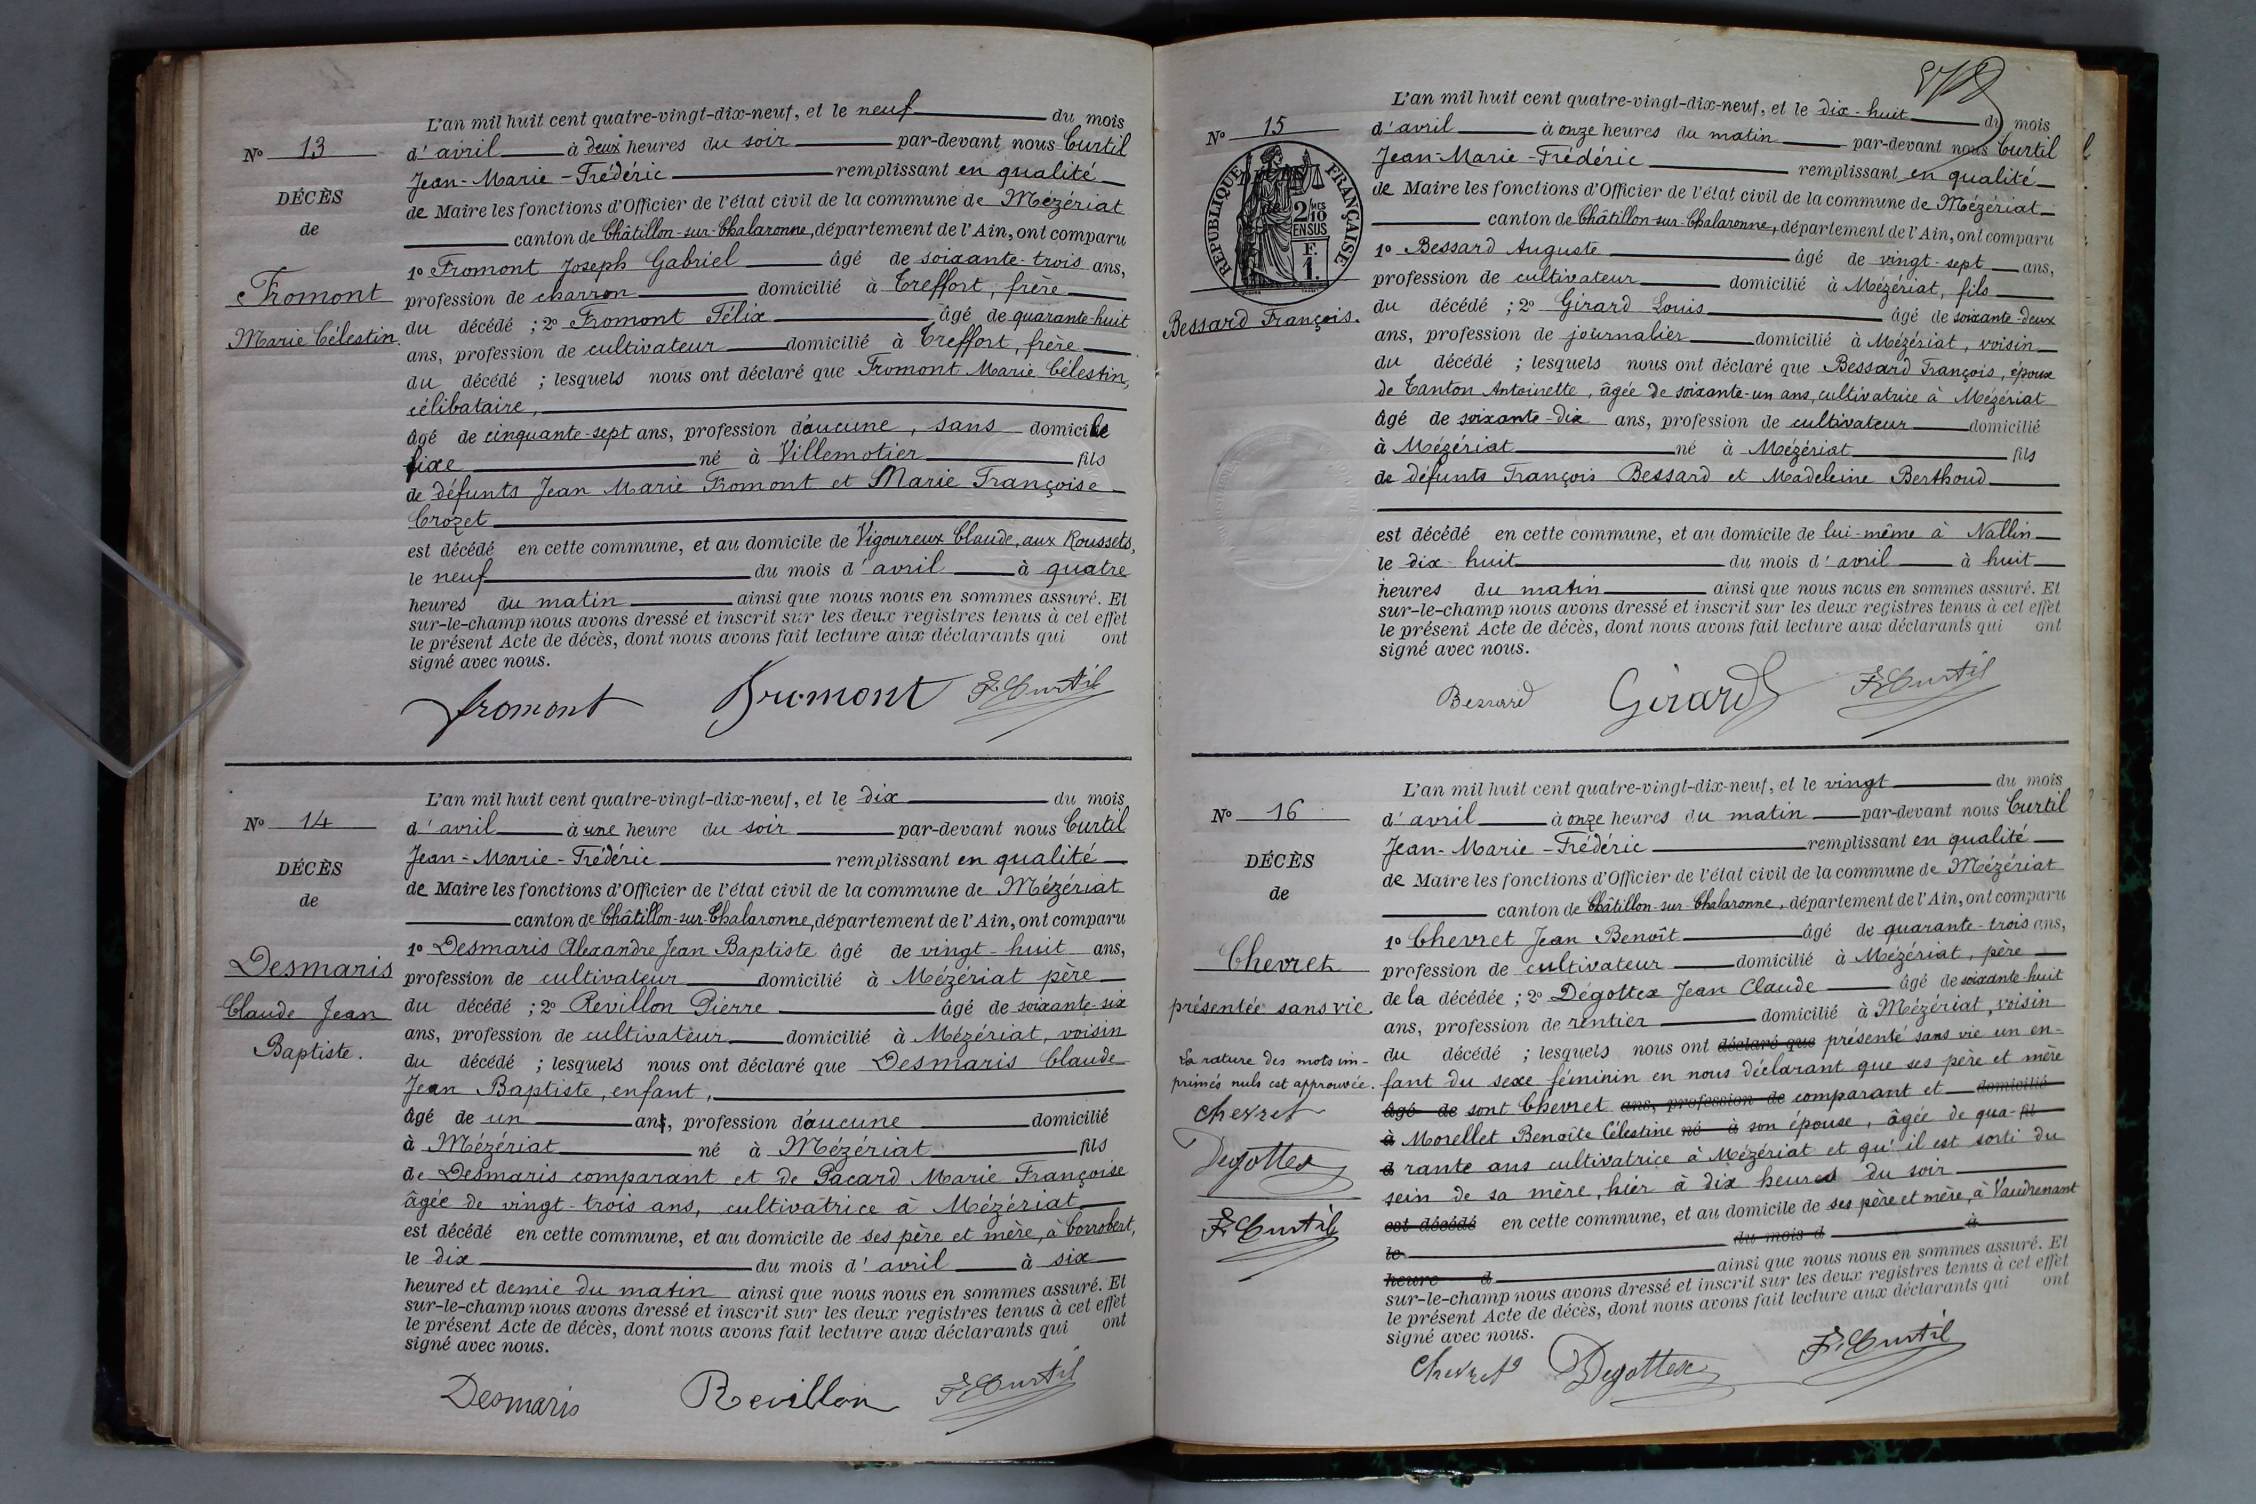 L'an mil huit cent quatre-vingt-dix-neuf, et le neuf du mois
No 13
d'avril à deux heures du soir par-devant nous Curtil
Jean-Marie-Frédéric remplissant en qualité
DÉCÈS
de
de Maire les fonctions d'Officier de l'état civil de la commune de Mézériat
canton de Châtillon-sur-Chalaronne, département de l'Ain, ont comparu
1º Fromont Joseph Gabriel âgé de soixante-trois ans,
Fromont
Marie Célestin.
profession de charron domicilié à Treffort, frère
du décédé ; 2º Fromont Félix âgé de quarante-huit
ans, profession de cultivateur domicilié à Treffort, frère
du décédé ; lesquels nous ont déclaré que Fromont Marie Célestin,
célibataire,
âgé de cinquante-sept ans, profession d'aucune, sans domicile
fixe né à Villemotier fils
de défunts Jean Marie Fromont et Marie Françoise
Crozet
est décédé en cette commune, et au domicile de Vigoureux Claude, aux Roussets,
le neuf du mois d'avril à quatre
heures du matin ainsi que nous nous en sommes assuré. Et
sur-le-champ nous avons dressé et inscrit sur les deux registres tenus à cet effet
le présent Acte de décès, dont nous avons fait lecture aux déclarants qui ont
signé avec nous.
fromont Fromont F. Curtil
L'an mil huit cent quatre-vingt-dix-neuf, et le dix du mois
No 14
d'avril à une heure du soir par-devant nous Curtil
Jean-Marie-Frédéric remplissant en qualité
DÉCÈS
de
de Maire les fonctions d'Officier de l'état civil de la commune de Mézériat
canton de Châtillon-sur-Chalaronne, département de l'Ain, ont comparu
1º Desmaris Alexandre Jean Baptiste âgé de vingt-huit ans,
Desmaris
Claude Jean
Baptiste.
profession de cultivateur domicilié à Mézériat père
du décédé ; 2º Revillon Pierre âgé de soixante-six
ans, profession de cultivateur domicilié à Mézériat, voisin
du décédé ; lesquels nous ont déclaré que Desmaris Claude
Jean Baptiste, enfant,
âgé de un an, profession d'aucune domicilié
à Mézériat né à Mézériat fils
de Desmaris comparant et de Pacard Marie Françoise
âgée de vingt-trois ans, cultivatrice à Mézériat
est décédé en cette commune, et au domicile de ses père et mère, à Corrobert,
le dix du mois d'avril à six
heures et demie du matin ainsi que nous nous en sommes assuré. Et
sur-le-champ nous avons dressé et inscrit sur les deux registres tenus à cet effet
le présent Acte de décès, dont nous avons fait lecture aux déclarants qui ont
signé avec nous.
Desmaris Revillon F. Curtil
L'an mil huit cent quatre-vingt-dix-neuf, et le dix-huit du mois
No 15
d'avril à onze heures du matin par-devant nous Curtil
Jean-Marie-Frédéric remplissant en qualité
RÉPUBLIQUE FRANÇAISE
2/10 MES
EN SUS
F.
1.
de Maire les fonctions d'Officier de l'état civil de la commune de Mézériat
canton de Châtillon-sur-Chalaronne, département de l'Ain, ont comparu
1º Bessard Auguste âgé de vingt-sept ans,
profession de cultivateur domicilié à Mézériat, fils
Bessard François.
du décédé ; 2º Girard Louis âgé de soixante-deux
ans, profession de journalier domicilié à Mézériat, voisin
du décédé ; lesquels nous ont déclaré que Bessard François, époux
de Tanton Antoinette, âgée de soixante-un ans, cultivatrice à Mézériat
âgé de soixante-dix ans, profession de cultivateur domicilié
à Mézériat né à Mézériat fils
de défunts François Bessard et Madeleine Berthoud
est décédé en cette commune, et au domicile de lui-même à Nallin
le dix-huit du mois d'avril à huit
heures du matin ainsi que nous nous en sommes assuré. Et
sur-le-champ nous avons dressé et inscrit sur les deux registres tenus à cet effet
le présent Acte de décès, dont nous avons fait lecture aux déclarants qui ont
signé avec nous.
Bessard Girard F. Curtil
L'an mil huit cent quatre-vingt-dix-neuf, et le vingt du mois
No 16
d'avril à onze heures du matin par-devant nous Curtil
Jean-Marie-Frédéric remplissant en qualité
DÉCÈS
de
de Maire les fonctions d'Officier de l'état civil de la commune de Mézériat
canton de Châtillon-sur-Chalaronne, département de l'Ain, ont comparu
1º Chevret Jean Benoît âgé de quarante-trois ans,
Chevret
présentée sans vie.
profession de cultivateur domicilié à Mézériat, père
de la décédée ; 2º Dégottex Jean Claude âgé de soixante-huit
ans, profession de rentier domicilié à Mézériat, voisin
La rature des mots im-
primés nuls est approuvée.
Chevret
Degottex
F. Curtil
du décédé ; lesquels nous ont déclaré que présenté sans vie un en-
fant du sexe féminin en nous déclarant que ses père et mère
âgé de sont Chevret ans, profession de comparant et domicilié
à Morellet Benoîte Célestine né à son épouse, âgée de qua- fil
d rante ans cultivatrice à Mézériat et qu'il est sorti du
sein de sa mère, hier à dix heures du soir
est décédé en cette commune, et au domicile de ses père et mère, à Vaudrenant
le du mois d à
heure d ainsi que nous nous en sommes assuré. Et
sur-le-champ nous avons dressé et inscrit sur les deux registres tenus à cet effet
le présent Acte de décès, dont nous avons fait lecture aux déclarants qui ont
signé avec nous.
Chevret Degottex F. Curtil